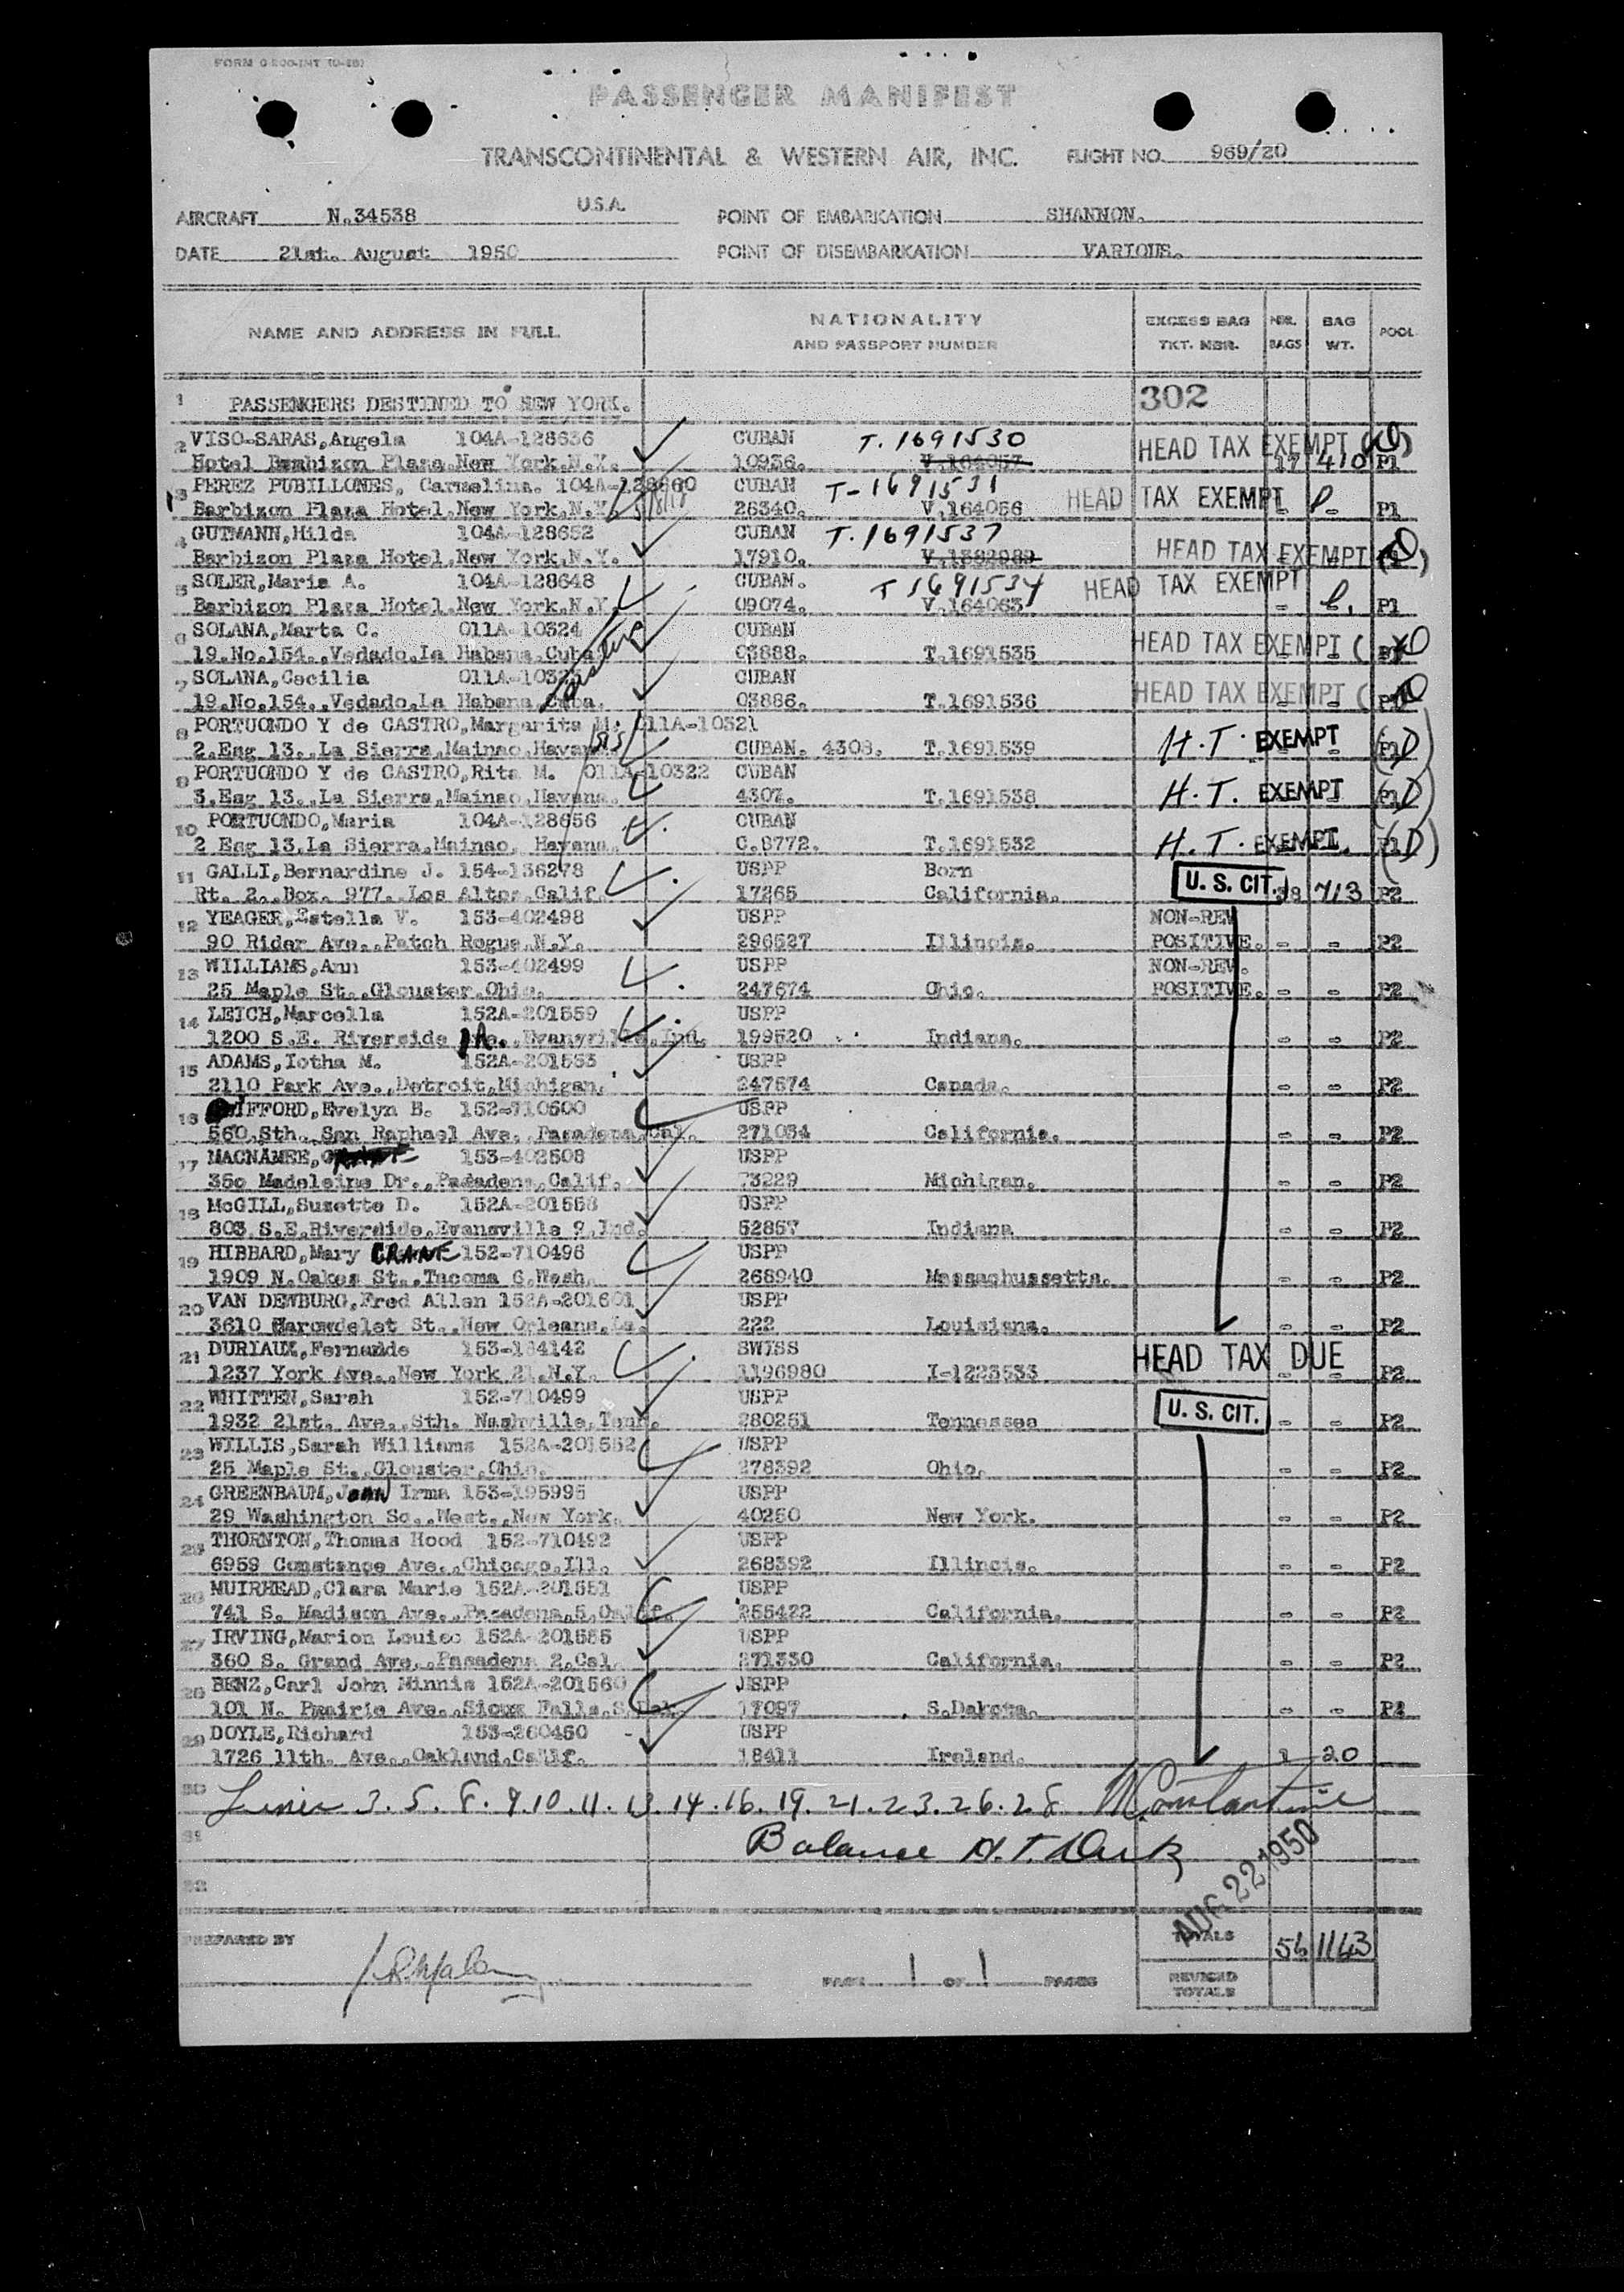 PASSENGER MANIFEST
TRANSCONTINENTAL & WESTERN AIR, INC. FLIGHT NO. 969/20
AIRCRAFT N.34538 U.S.A. POINT OF EMBARKATION SHANNON.
DATE 21st. August 1950 POINT OF DISEMBARKATION VARIOUS.
NAME AND ADDRESS IN FULL NATIONALITY AND PASSPORT NUMBER EXCESS BAG TKT. NBR. NBR. BAGS BAG WT. POOL
1 PASSENGERS DESTINED TO NEW YORK. 302
2 VISO-SARAS, Angela 104A-128636 CUBAN T. 1691530 HEAD TAX EXEMPT
Hotel Plaza, New York, N.Y. 10936. 17 410 P1
3 PEREZ PUBILLONES, Carmelina. 104A-128660 CUBAN T-1691531 HEAD TAX EXEMPT
Barbizon Plaza Hotel, New York, N.Y. 26340. V.164056 P1
4 GUTMANN, Hilda 104A-128652 CUBAN T.1691537
Barbizon Plaza Hotel, New York, N.Y. 17910. V.1382989 HEAD TAX EXEMPT
5 SOLER, Maria A. 104A-128648 CUBAN. T 1691534 HEAD TAX EXEMPT
Barbizon Plaza Hotel, New York, N.Y. 09074. V.164063 P1
6 SOLANA, Marta C. 011A-10324 CUBAN HEAD TAX EXEMPT
19.No.154., Vedado, La Habana, Cuba 03888. T.1691535
7 SOLANA, Cecilia CUBAN HEAD TAX EXEMPT
19.No.154., Vedado, La Habana, Cuba. 03886. T.1691536
8 PORTUONDO Y de CASTRO, Margarita M. 011A-10321
2.Esq 13., La Sierra, Mainao, Havana CUBAN. 4308. T.1691539 H.T. EXEMPT P1 D
9 PORTUONDO Y de CASTRO, Rita M. 011A-10322 CUBAN
3.Esq 13., La Sierra, Mainao, Havana. 4307. T.1691538 H.T. EXEMPT P1 D
10 PORTUONDO, Maria 104A-128656 CUBAN
2 Esq 13, La Sierra, Mainao, Havana. C.8772. T.1691532 H.T. EXEMPT P1 D
11 GALLI, Bernardine J. 154-136278 USPP Born U. S. CIT.
Rt. 2., Box. 977. Los Altos, Calif. 17265 California. 38 713 P2
12 YEAGER, Estella V. 153-402498 USPP NON-REV
90 Rider Ave., Patch Rogue, N.Y. 296527 Illinois. POSITIVE. - - P2
13 WILLIAMS, Ann 153-402499 USPP NON-REV.
25 Maple St., Glouster, Ohio. 247674 Ohio. POSITIVE. - - P2
14 LEICH, Marcella 152A-201559 USPP
1200 S.E. Riverside, Evansville, Ind. 199520 Indiana. - - P2
15 ADAMS, Iotha M. 152A-201553 USPP
2110 Park Ave., Detroit, Michigan. 247574 Canada. - - P2
16 IFFORD, Evelyn B. 152-710500 USPP
560.Sth. San Raphael Ave., Pasadena, Cal. 271034 California. - - P2
17 MACNAMEE, 153-402508 USPP
350 Madeleine Dr., Pasadena, Calif. 73229 Michigan. - - P2
18 McGILL, Suzette D. 152A-201558 USPP
803 S.E.Riverside, Evansville 9, Ind. 52857 Indiana - - P2
19 HIBBARD, Mary CRANE 152-710496 USPP
1909 N. Oakes St., Tacoma 6, Wash. 268940 Massachussetts. - - P2
20 VAN DENBURG, Fred Allen 152A-201601 USPP
3610 St., New Orleans, La. 222 Louisiana. - - P2
21 DURIAUX, Fernande 153-184142 SWISS HEAD TAX DUE
1237 York Ave., New York 21, N.Y. 1196980 I-1223533 - - P2
22 WHITTEN, Sarah 152-710499 USPP U. S. CIT.
1932 21st. Ave., Sth. Nashville, Tenn. 280251 Tennessee - - P2
23 WILLIS, Sarah Williams 152A-201552 USPP
25 Maple St., Glouster, Ohio. 278392 Ohio. - - P2
24 GREENBAUM, Joan Irma 153-195995 USPP
29 Washington Sq., West., New York. 40250 New York. - - P2
25 THORNTON, Thomas Hood 152-710492 USPP
6959 Constance Ave., Chicago, Ill. 268392 Illinois. - - P2
26 MUIRHEAD, Clara Marie 152A-201551 USPP
741 S. Madison Ave., Pasadena, 5, Calif. 255422 California. - - P2
27 IRVING, Marion Louise 152A-201585 USPP
360 S. Grand Ave., Pasadena 2, Cal. 271330 California. - - P2
28 BENZ, Carl John Minnis 152A-201560 USPP
101 N. Prairie Ave., Sioux Falls, S.Dak. 17097 S.Dakota. - - P2
29 DOYLE, Richard 153-260450 USPP
1726 11th. Ave., Oakland, Calif. 18411 Ireland. 1 20
30 Lines 3. 5. 8. 9. 10. 11. 13. 14. 16. 19. 21. 23. 26. 28. Constantine
31 Balance H.T.
32 AUG 22 1950
PREPARED BY TOTALS 56 1143
PAGE 1 OF 1 PAGES REVISED TOTALS